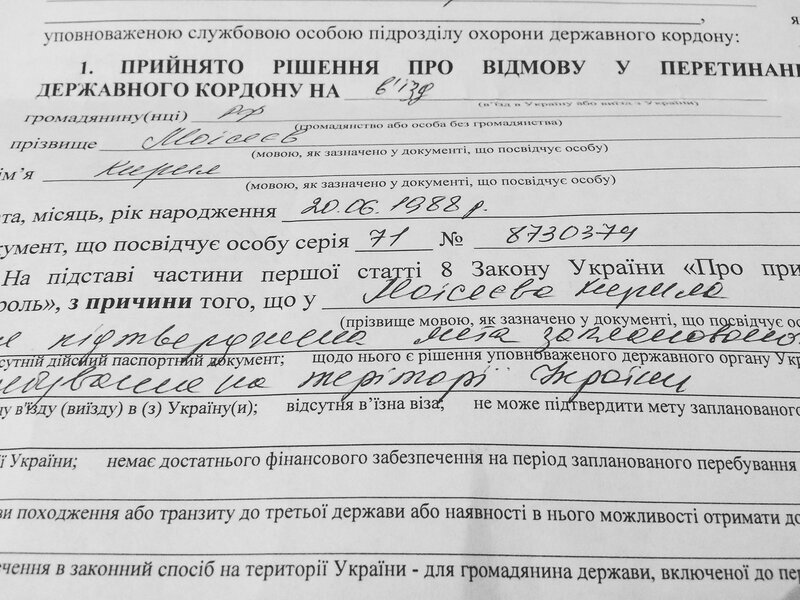 уповноваженою службовою особою підрозділу охорони державного кордону:
1. ПРИЙНЯТО РІШЕННЯ ПРО ВІДМОВУ У ПЕРЕТИНАН
ДЕРЖАВНОГО КОРДОНУ НА в'їзд
(в'їзд в Україну або виїзд з України)
громадянину(нці) рф
(громадянство або особа без громадянства)
прізвище Моісеєв
(мовою, як зазначено у документі, що посвідчує особу)
ім'я Кирил
(мовою, як зазначено у документі, що посвідчує особу)
ата, місяць, рік народження 20.06.1988 р.
кумент, що посвідчує особу серія 71 № 8730379
На підставі частини першої статті 8 Закону України «Про при
роль», з причини того, що у Моісеєва Кирила
(прізвище мовою, як зазначено у документі, що посвідчує осо
не підтверджена мета запланованого
сутній дійсний паспортний документ; щодо нього є рішення уповноваженого державного органу Укр
ебування на теріторії України
ду в'їзду (виїзду) в (з) Україну(и); відсутня в'їзна віза; не може підтвердити мету запланованого
ї України; немає достатнього фінансового забезпечення на період запланованого перебування
ви походження або транзиту до третьої держави або наявності в нього можливості отримати до
ечення в законний спосіб на території України - для громадянина держави, включеної до пер